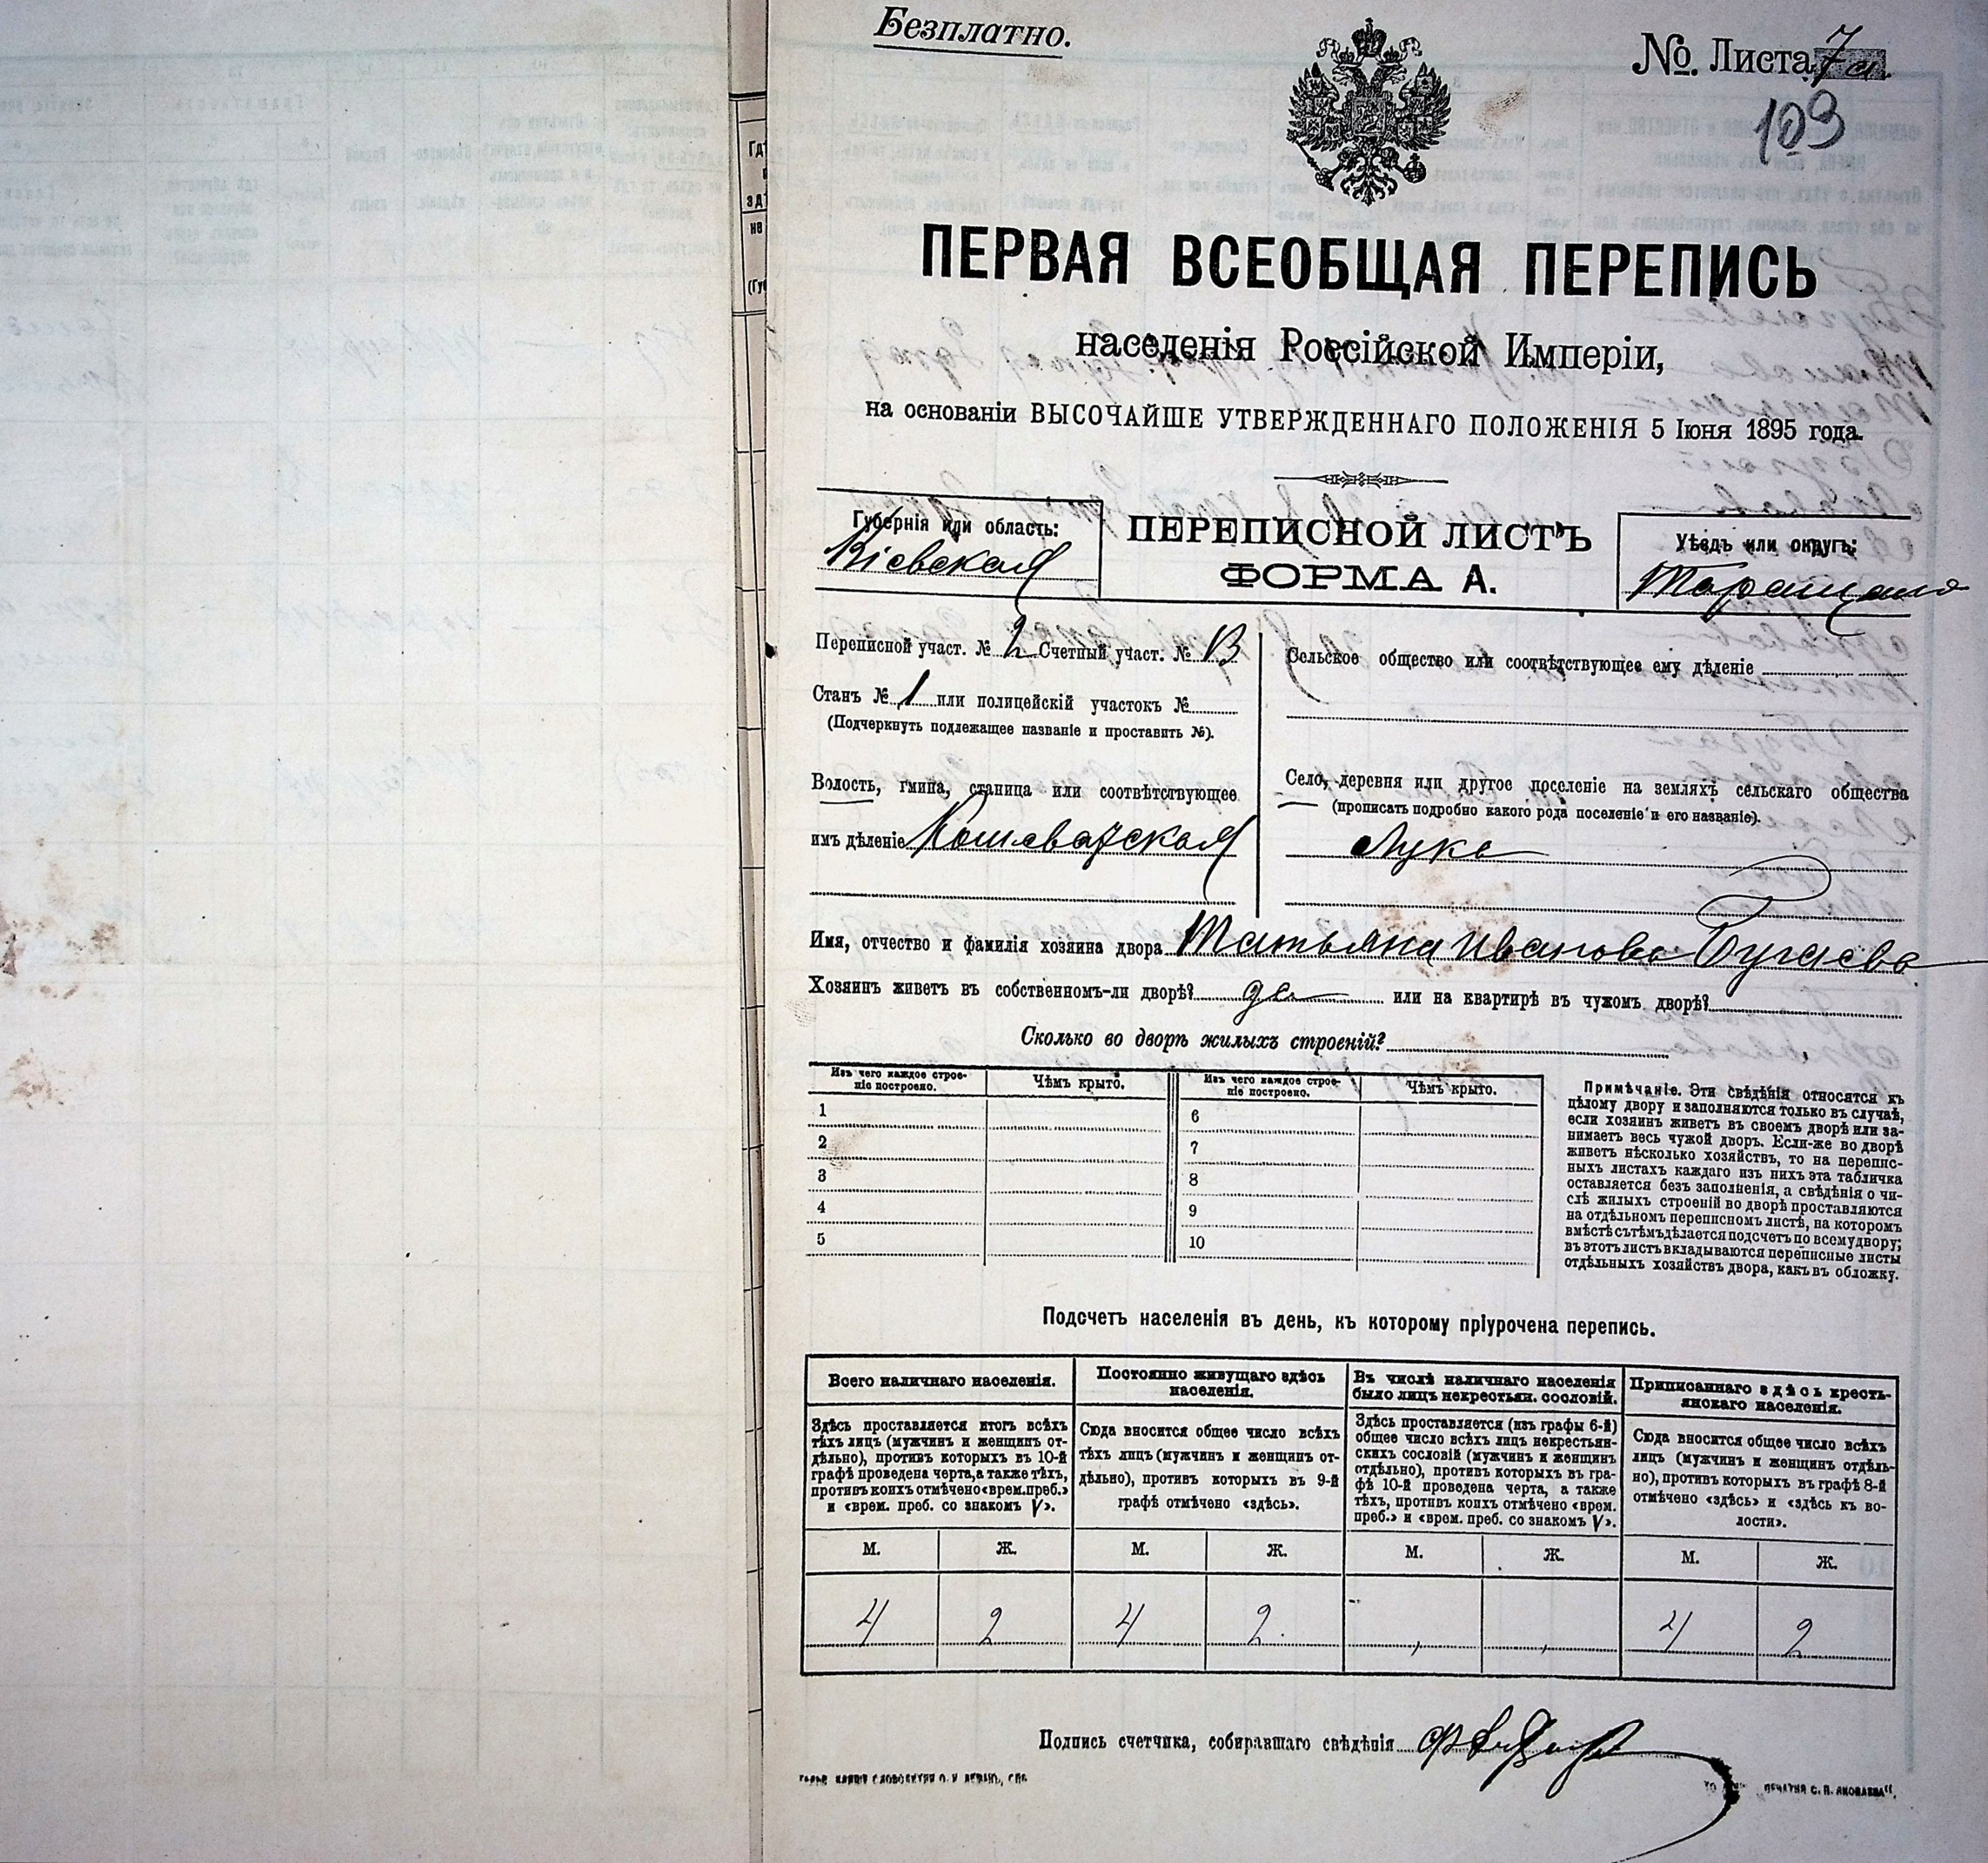 Безплатно.
№ Листа 7а.
109
ПЕРВАЯ ВСЕОБЩАЯ ПЕРЕПИСЬ
населенія Россійской Имперіи,
на основаніи ВЫСОЧАЙШЕ УТВЕРЖДЕННАГО ПОЛОЖЕНІЯ 5 Іюня 1895 года.
Губернія или область:
Кіевская
ПЕРЕПИСНОЙ ЛИСТЪ
ФОРМА А.
Уѣздъ или округъ:
Переписной участ. № 2 Счетный участ. №
Станъ № 1 или полицейскій участокъ №
(Подчеркнуть подлежащее названіе и проставить №).
Волость, гмина, станица или соотвѣтствующее
имъ дѣленіе
Сельское общество или соотвѣтствующее ему дѣленіе
Село, деревня или другое поселеніе на земляхъ сельскаго общества
(прописать подробно какого рода поселеніе и его названіе).
Лука
Имя, отчество и фамилія хозяина двора Татьяна Иванова Бугаева
Хозяинъ живетъ въ собственномъ-ли дворѣ? да или на квартирѣ въ чужомъ дворѣ?
Сколько во дворѣ жилыхъ строеній?
Изъ чего каждое строе-
ніе построено.
Чѣмъ крыто.
Изъ чего каждое строе-
ніе построено.
Чѣмъ крыто.
1
2
3
4
5
6
7
8
9
10
Примѣчаніе. Эти свѣдѣнія относятся къ
цѣлому двору и заполняются только въ случаѣ,
если хозяинъ живетъ въ своемъ дворѣ или за-
нимаетъ весь чужой дворъ. Если-же во дворѣ
живетъ нѣсколько хозяйствъ, то на перепис-
ныхъ листахъ каждаго изъ нихъ эта табличка
оставляется безъ заполненія, а свѣдѣнія о чи-
слѣ жилыхъ строеній во дворѣ проставляются
на отдѣльномъ переписномъ листѣ, на которомъ
вмѣстѣ съ тѣмъ дѣлается подсчетъ по всему двору;
въ этотъ листъ вкладываются переписные листы
отдѣльныхъ хозяйствъ двора, какъ въ обложку.
Подсчетъ населенія въ день, къ которому пріурочена перепись.
Всего наличнаго населенія.
Здѣсь проставляется итогъ всѣхъ
тѣхъ лицъ (мужчинъ и женщинъ от-
дѣльно), противъ которыхъ въ 10-й
графѣ проведена черта, а также тѣхъ,
противъ коихъ отмѣчено «врем. преб.»
и «врем. преб. со знакомъ V».
Постоянно живущаго здѣсь
населенія.
Сюда вносится общее число всѣхъ
тѣхъ лицъ (мужчинъ и женщинъ от-
дѣльно), противъ которыхъ въ 9-й
графѣ отмѣчено «здѣсь».
Въ числѣ наличнаго населенія
было лицъ некрестьян. сословій.
Здѣсь проставляется (изъ графы 6-й)
общее число всѣхъ лицъ некрестьян-
скихъ сословій (мужчинъ и женщинъ
отдѣльно), противъ которыхъ въ гра-
фѣ 10-й проведена черта, а также
тѣхъ, противъ коихъ отмѣчено «врем.
преб.» и «врем. преб. со знакомъ V».
Приписаннаго здѣсь кресть-
янскаго населенія.
Сюда вносится общее число всѣхъ
лицъ (мужчинъ и женщинъ отдѣль-
но), противъ которыхъ въ графѣ 8-й
отмѣчено «здѣсь» и «здѣсь къ во-
лости».
М. Ж. М. Ж. М. Ж. М. Ж.
4 2 4 2 4 2
Подпись счетчика, собиравшаго свѣдѣнія
ПЕЧАТНЯ С. П. ЯКОВЛЕВА